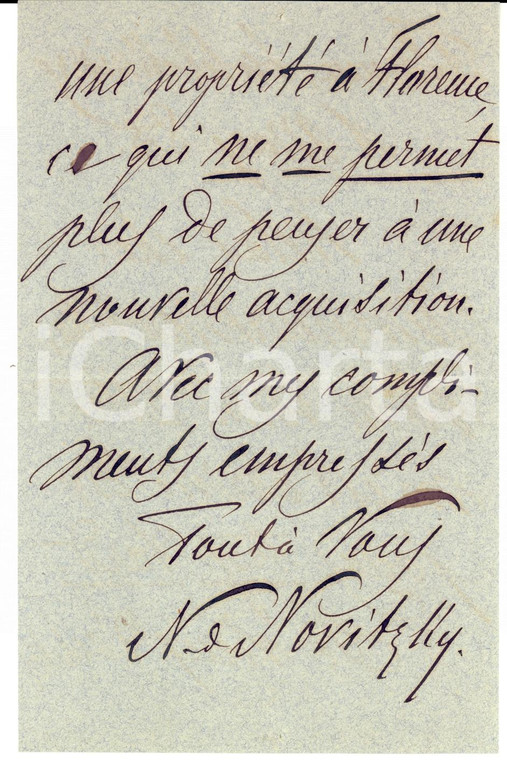 une propriété à Florence,
ce qui ne me permet
plus de penser à une
nouvelle acquisition.
iCharta
Avec mes compli-
ments empressés
Tout à Vous
N. de Novitzky.